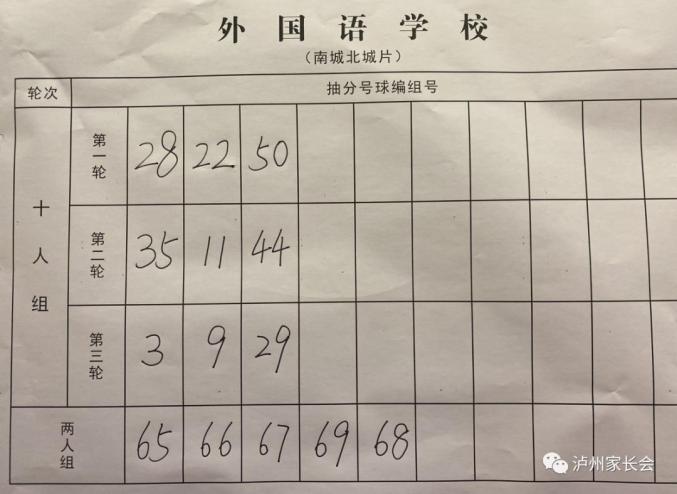 外国语学校
（南城北城片）
轮次 抽分号球编组号
十人组
第一轮 28 22 50
第二轮 35 11 44
第三轮 3 9 29
两人组 65 66 67 69 68
泸州家长会